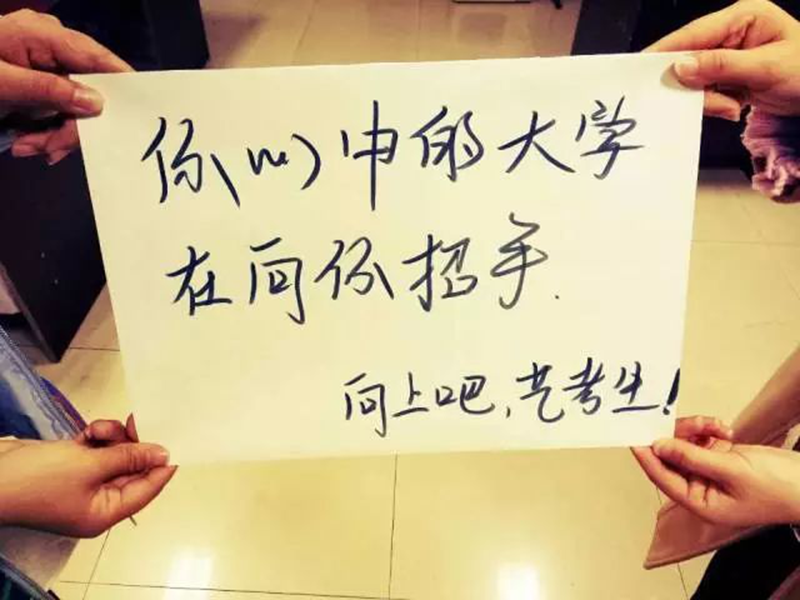 你心中的大学
在向你招手.
向上吧,艺考生!